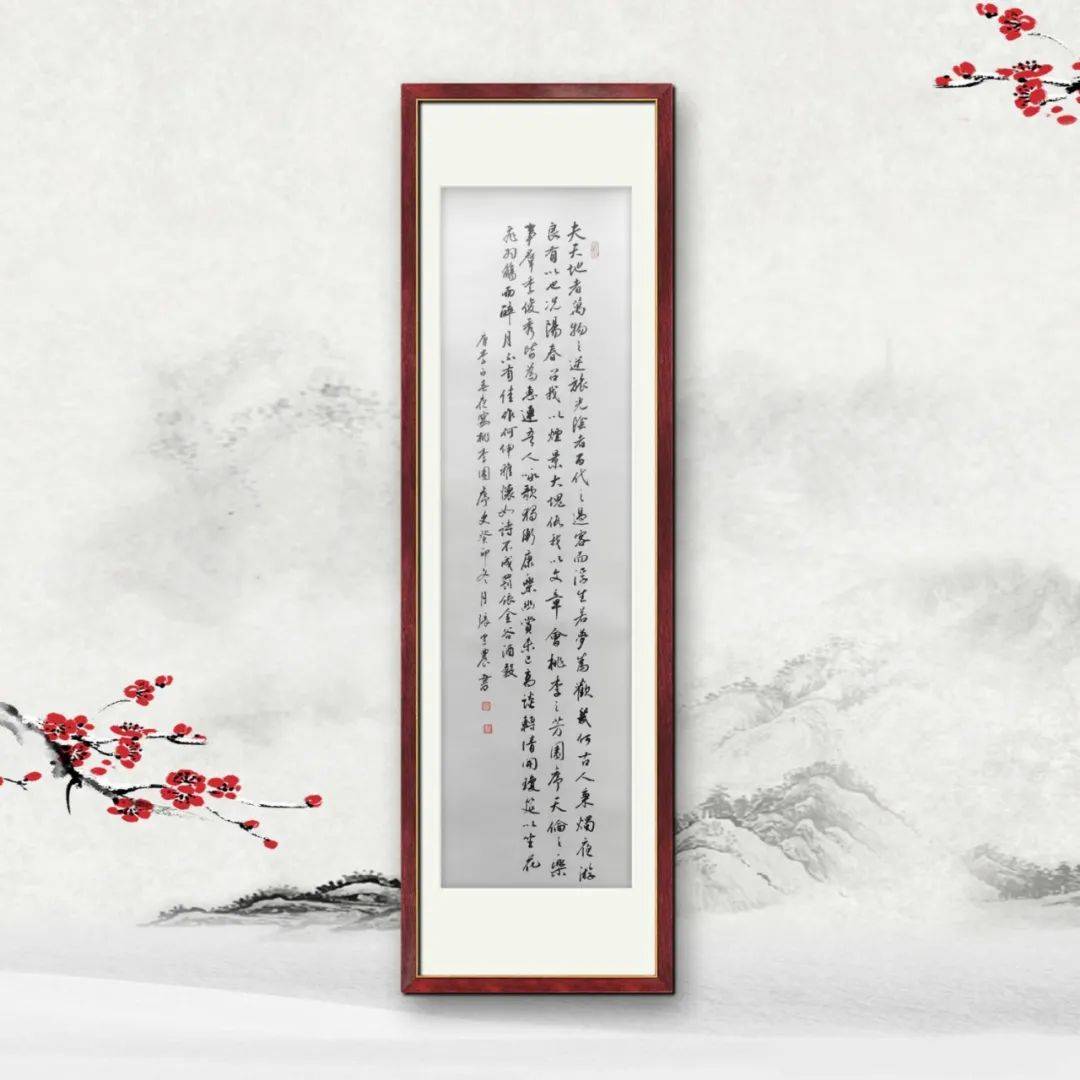 夫天地者萬物之逆旅光陰者百代之過客而浮生若夢為歡幾何古人秉燭夜游
良有以也況陽春召我以煙景大塊假我以文章會桃李之芳園序天倫之樂
事群季俊秀皆為惠連吾人詠歌獨慚康樂幽賞未已高談轉清開瓊筵以坐花
飛羽觴而醉月不有佳作何伸雅懷如詩不成罰依金谷酒數
唐李白春夜宴桃李園序文癸卯冬月張書